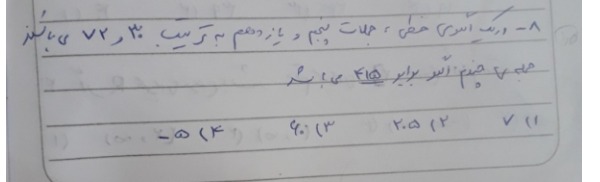 ۸- در یک الگوی خطی، جملات پنجم و یازدهم به ترتیب ۳۰ و ۷۲ می باشند
جمله ی چندم الگو برابر ۴۱۵ می باشد
۱) ۷ ۲) ۲۰۵ ۳) ۶۰ ۴) ۵-